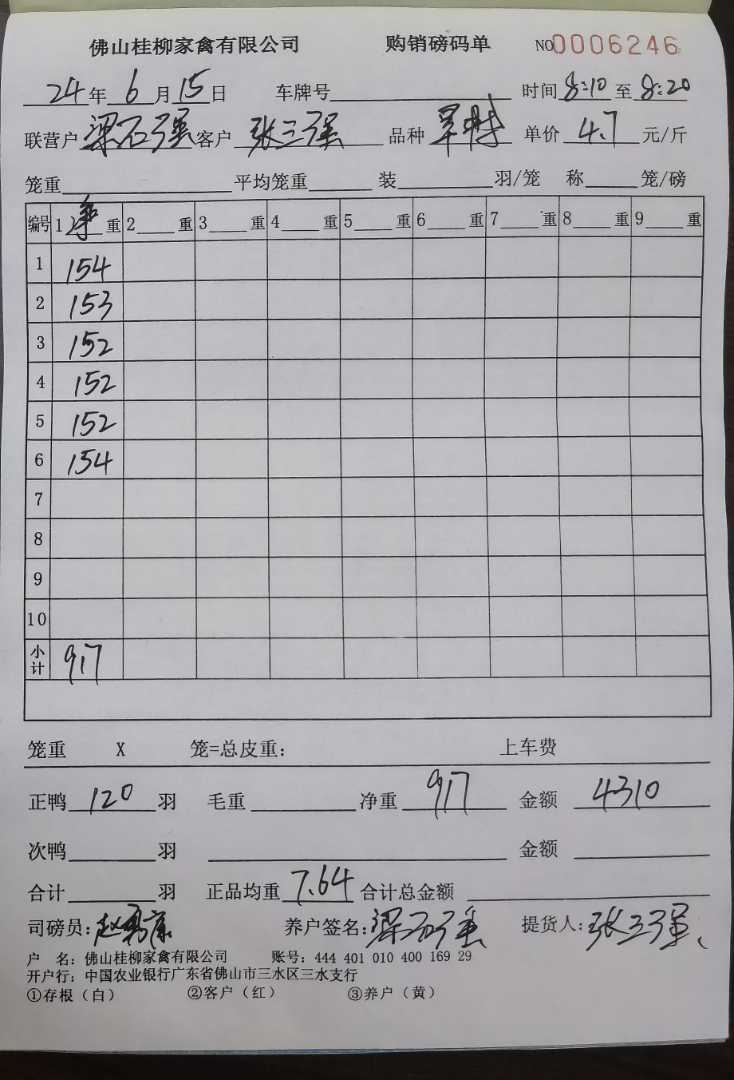 佛山桂柳家禽有限公司 购销磅码单 NO0006246
24年6月15日 车牌号 时间8:10至8:20
联营户梁石强客户张三强 品种 单价4.7元/斤
笼重 平均笼重 装 羽/笼 称 笼/磅
编号 1净重 2 重 3 重 4 重 5 重 6 重 7 重 8 重 9 重
1 154
2 153
3 152
4 152
5 152
6 154
7
8
9
10
小计 917
笼重 X 笼=总皮重: 上车费
正鸭120羽 毛重 净重917 金额4310
次鸭 羽 金额
合计 羽 正品均重7.64合计总金额
司磅员: 养户签名:梁石强 提货人:张三强
户 名: 佛山桂柳家禽有限公司 账号: 444 401 010 400 169 29
开户行: 中国农业银行广东省佛山市三水区三水支行
①存根(白) ②客户(红) ③养户(黄)